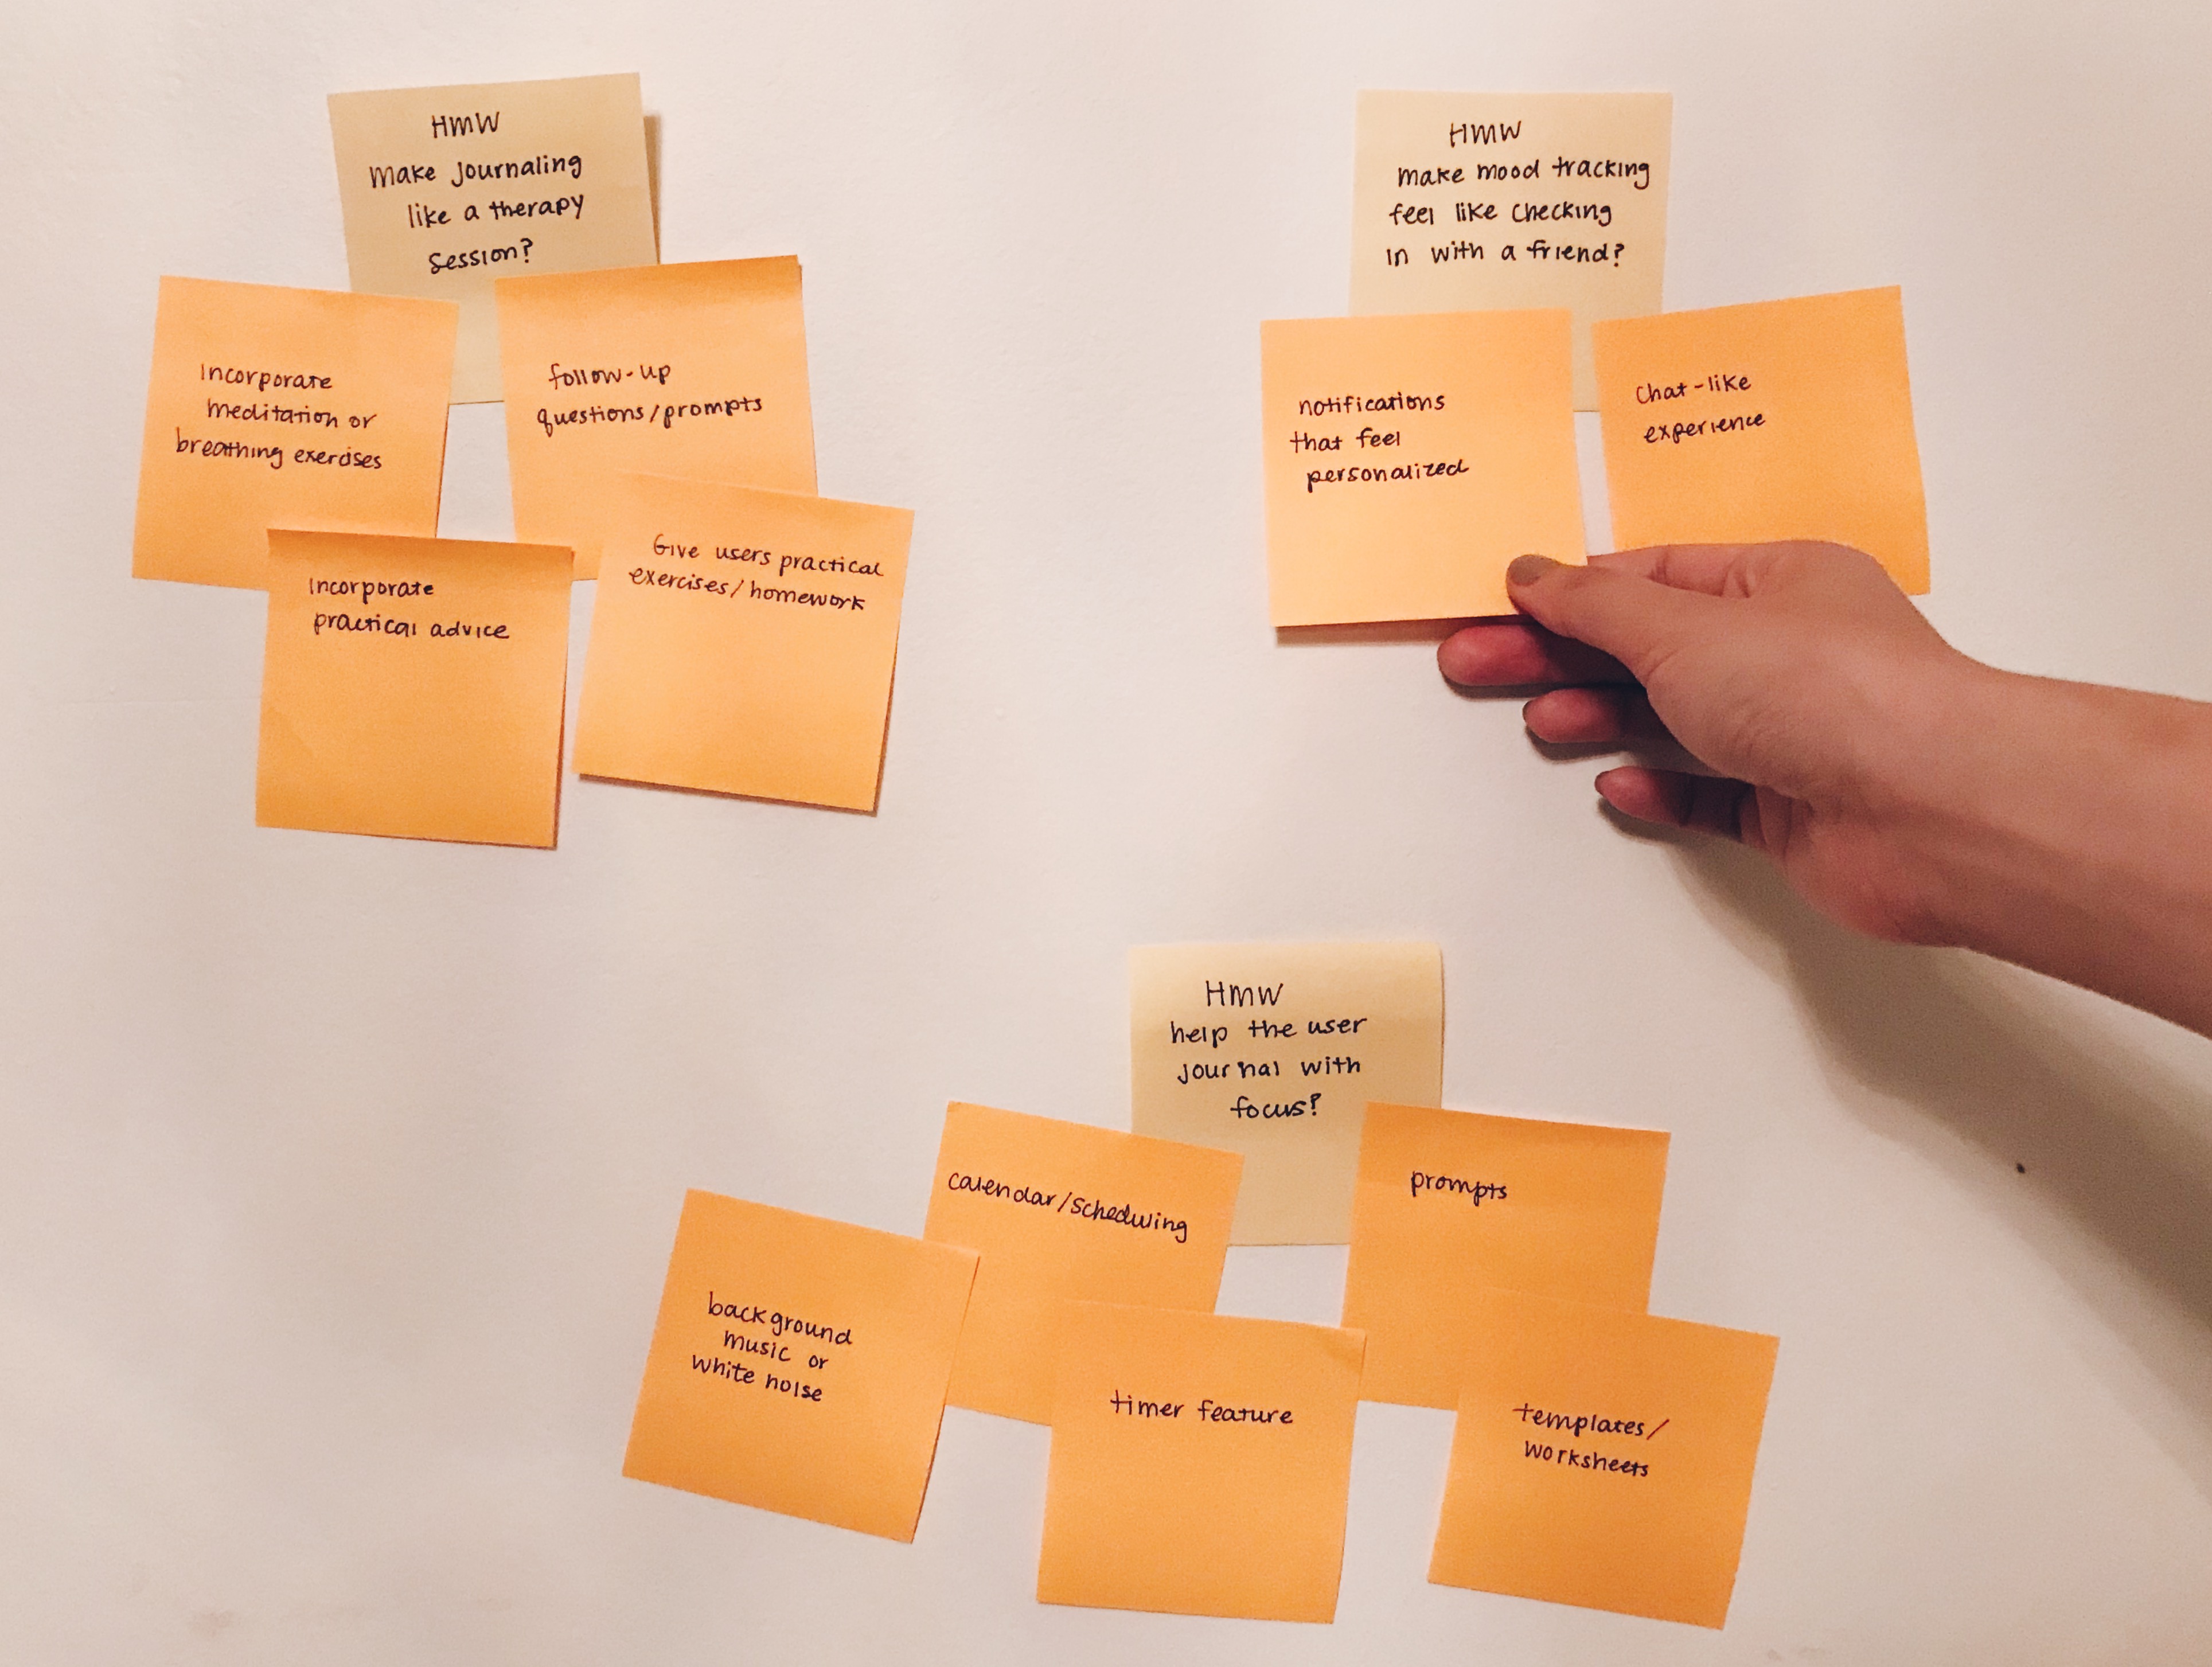 HMW
make journaling
like a therapy
session?
Incorporate
meditation or
breathing exercises
follow-up
questions/prompts
Incorporate
practical advice
Give users practical
exercises/homework
HMW
make mood tracking
feel like checking
in with a friend?
notifications
that feel
personalized
chat-like
experience
HMW
help the user
journal with
focus?
background
music or
white noise
calendar/scheduling
timer feature
prompts
templates/
worksheets